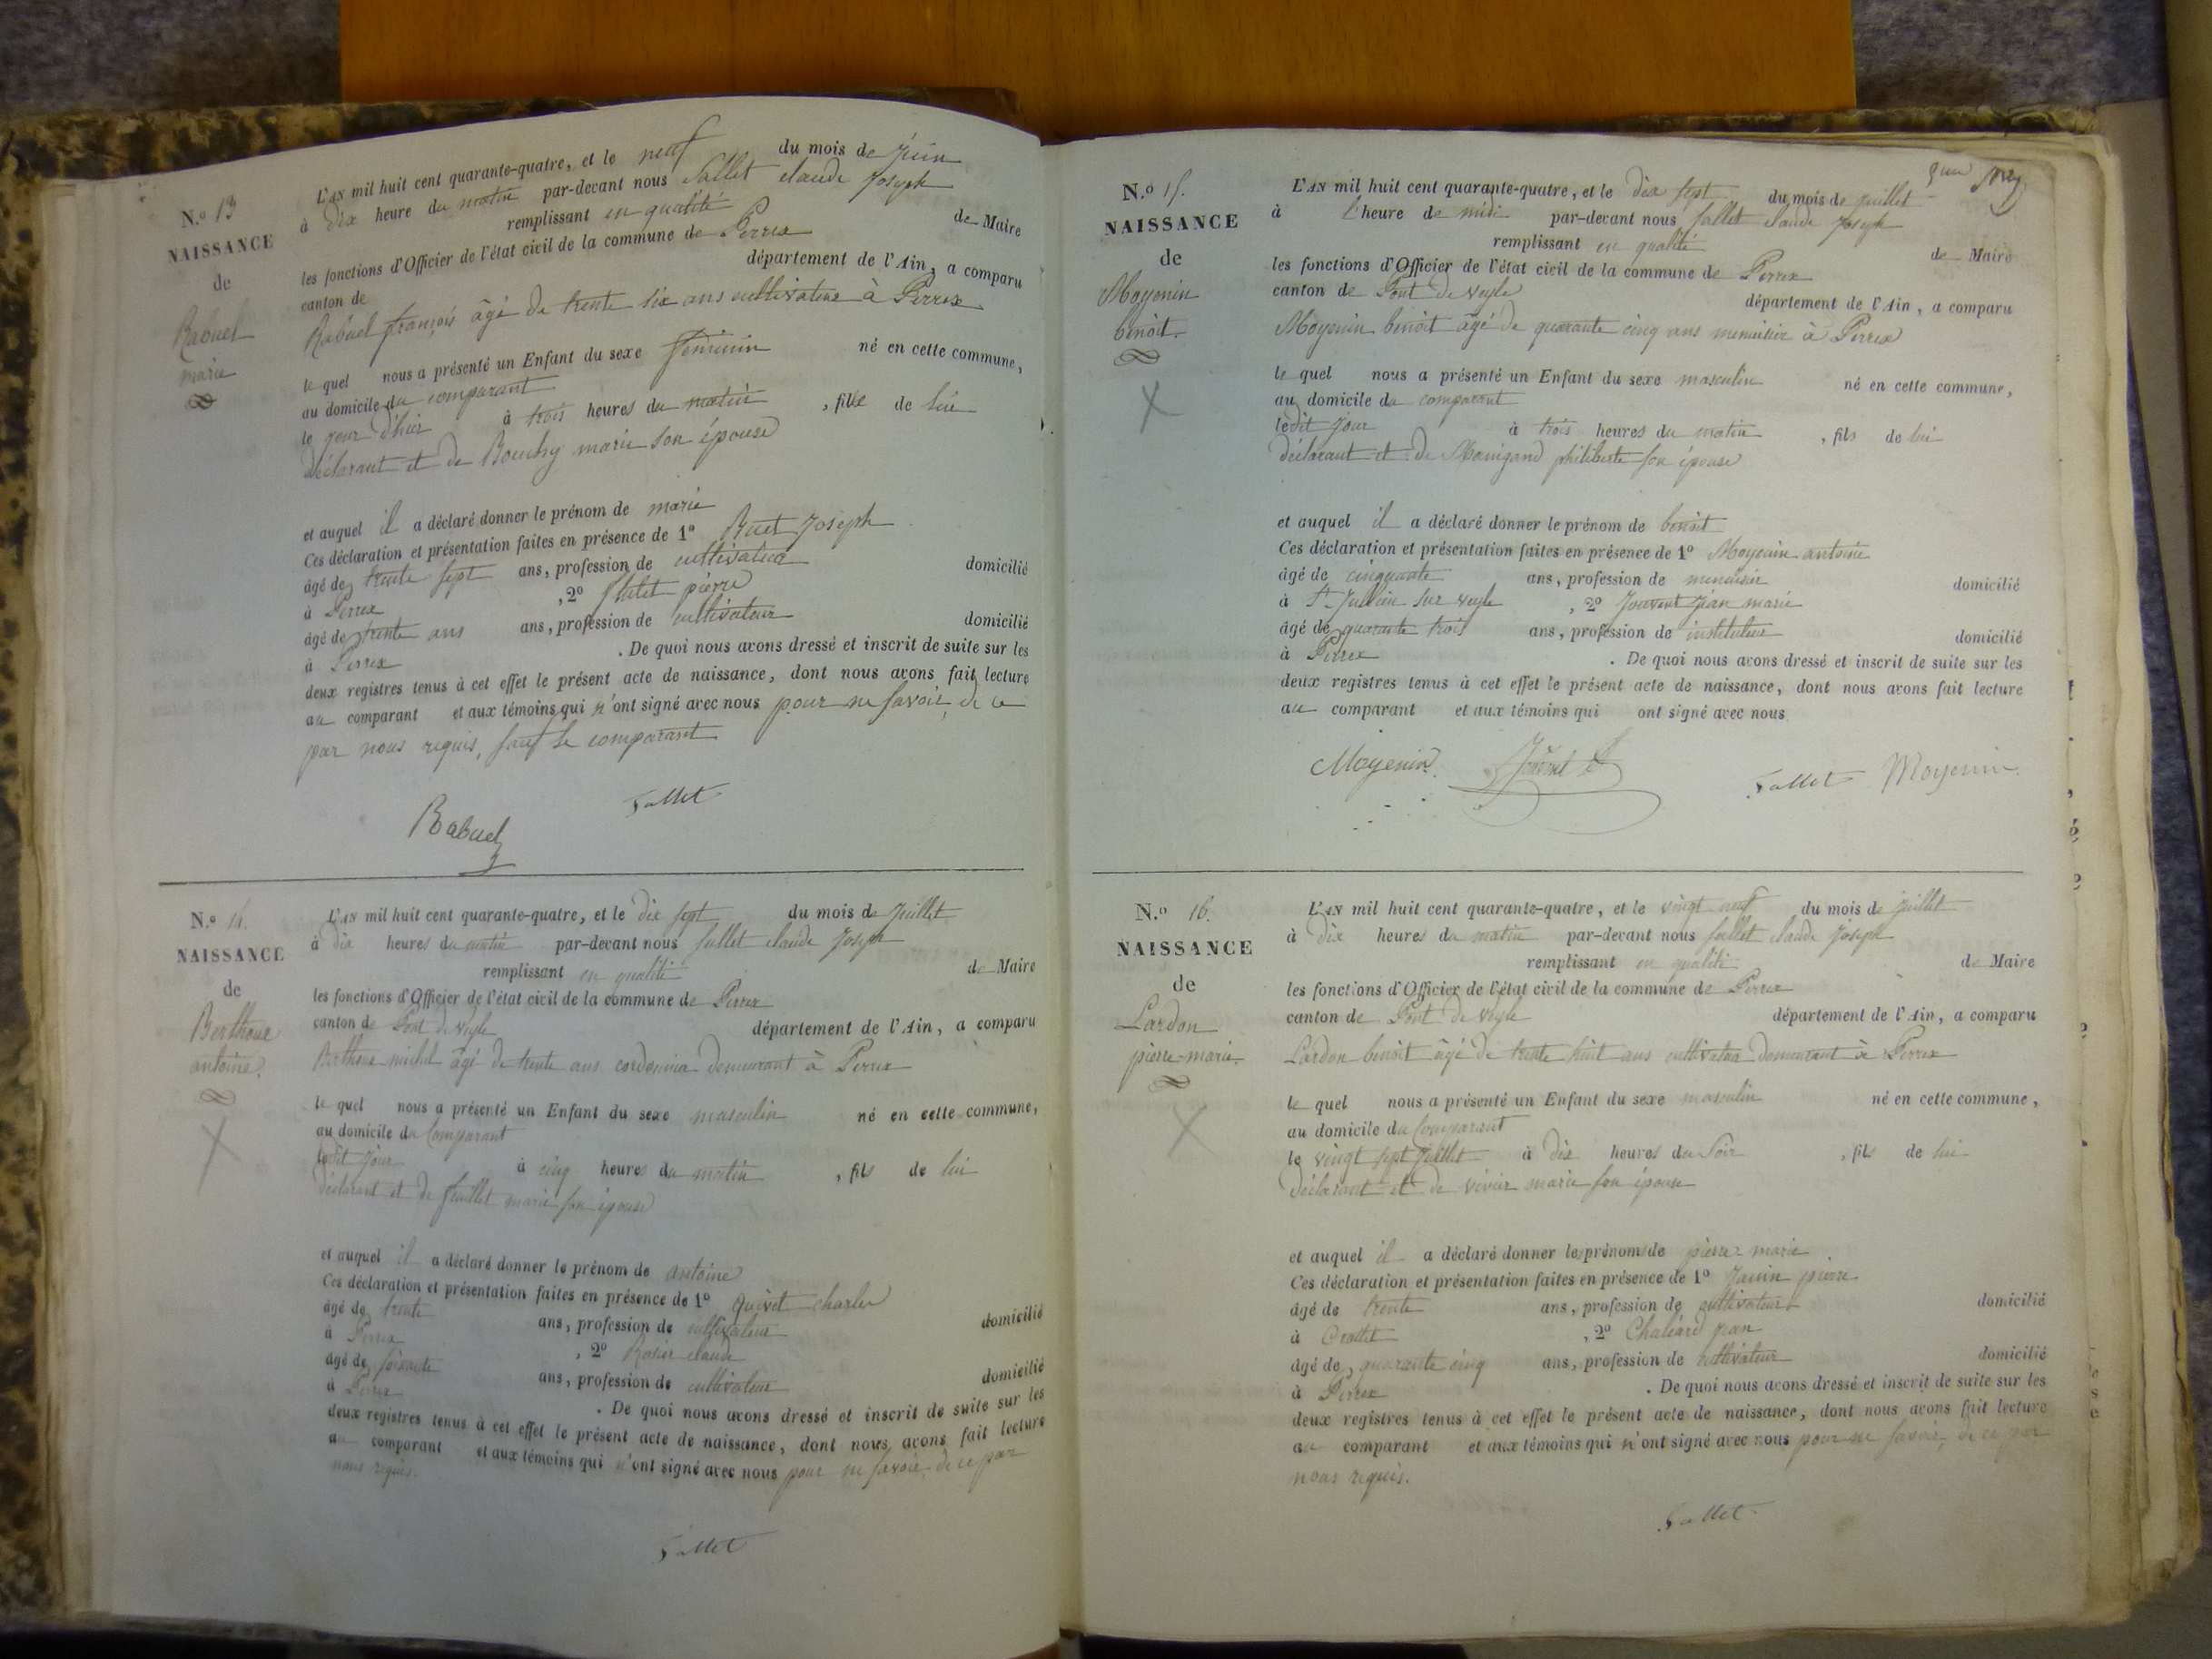 N.º 13
NAISSANCE
de
Rabuel
marie
L'AN mil huit cent quarante-quatre, et le neuf du mois de Juin
à Dix heure du matin par-devant nous Sallet claude Joseph
remplissant en qualité de Maire
les fonctions d'Officier de l'état civil de la commune de Perrex
canton de département de l'Ain, a comparu
Rabuel françois âgé de trente six ans cultivateur à Perrex
le quel nous a présenté un Enfant du sexe féminin né en cette commune,
au domicile du comparant
le jour d'hier à trois heures du matin, fille de lui
déclarant et de Bouchy marie son épouse
et auquel il a déclaré donner le prénom de marie
Ces déclaration et présentation faites en présence de 1º Ruet Joseph
âgé de trente sept ans, profession de cultivateur domicilié
à Perrex, 2º pierre
âgé de trente ans ans, profession de cultivateur domicilié
à Perrex. De quoi nous avons dressé et inscrit de suite sur les
deux registres tenus à cet effet le présent acte de naissance, dont nous avons fait lecture
au comparant et aux témoins qui n'ont signé avec nous pour ne savoir, de ce
par nous requis, sauf le comparant
Sallet
Rabuel
N.º 14.
NAISSANCE
de
Berthoux
antoine.
L'AN mil huit cent quarante-quatre, et le dix sept du mois de Juillet
à dix heures du matin par-devant nous Sallet claude Joseph
remplissant en qualité de Maire
les fonctions d'Officier de l'état civil de la commune de Perrex
canton de Pont de veyle département de l'Ain, a comparu
michel âgé de trente ans cordonnier demeurant à Perrex
le quel nous a présenté un Enfant du sexe masculin né en cette commune,
au domicile du Comparant
ledit jour à cinq heures du matin, fils de lui
déclarant et de feuillet marie son épouse
et auquel il a déclaré donner le prénom de antoine
Ces déclaration et présentation faites en présence de 1º charles
âgé de trente ans, profession de cultivateur domicilié
à Perrex, 2º claude
âgé de soixante ans, profession de cultivateur domicilié
à Perrex. De quoi nous avons dressé et inscrit de suite sur les
deux registres tenus à cet effet le présent acte de naissance, dont nous avons fait lecture
au comparant et aux témoins qui n'ont signé avec nous pour ne savoir, de ce par
nous requis.
Sallet
N.º 15.
NAISSANCE
de
Moyenin
benoit.
L'AN mil huit cent quarante-quatre, et le dix sept du mois de juillet
à l'heure de midi par-devant nous Sallet claude Joseph
remplissant en qualité de Maire
les fonctions d'Officier de l'état civil de la commune de Perrex
canton de Pont de veyle département de l'Ain, a comparu
Moyenin benoit âgé de quarante cinq ans menuisier à Perrex
le quel nous a présenté un Enfant du sexe masculin né en cette commune,
au domicile du comparant
ledit jour à trois heures du matin, fils de lui
déclarant et de philiberte son épouse
et auquel il a déclaré donner le prénom de benoit
Ces déclaration et présentation faites en présence de 1º Moyenin antoine
âgé de cinquante ans, profession de menuisier domicilié
à St Jullien sur veyle, 2º Jouvent Jean marie
âgé de quarante trois ans, profession de instituteur domicilié
à Perrex. De quoi nous avons dressé et inscrit de suite sur les
deux registres tenus à cet effet le présent acte de naissance, dont nous avons fait lecture
au comparant et aux témoins qui ont signé avec nous
Moyenin. Jouvent Sallet Moyenin.
N.º 16.
NAISSANCE
de
Lardon
pierre-marie.
L'AN mil huit cent quarante-quatre, et le vingt neuf du mois de juillet
à dix heures du matin par-devant nous Sallet claude Joseph
remplissant en qualité de Maire
les fonctions d'Officier de l'état civil de la commune de Perrex
canton de Pont de veyle département de l'Ain, a comparu
Lardon benoit âgé de trente huit ans cultivateur demeurant à Perrex
le quel nous a présenté un Enfant du sexe masculin né en cette commune,
au domicile du Comparant
le vingt sept Juillet à dix heures du soir, fils de lui
déclarant et de vivier marie son épouse
et auquel il a déclaré donner les prénoms de pierre-marie
Ces déclaration et présentation faites en présence de 1º Janin pierre
âgé de trente ans, profession de cultivateur domicilié
à Crottet, 2º Chaléard jean
âgé de quarante cinq ans, profession de cultivateur domicilié
à Perrex. De quoi nous avons dressé et inscrit de suite sur les
deux registres tenus à cet effet le présent acte de naissance, dont nous avons fait lecture
au comparant et aux témoins qui n'ont signé avec nous pour ne savoir, de ce par
nous requis.
Sallet